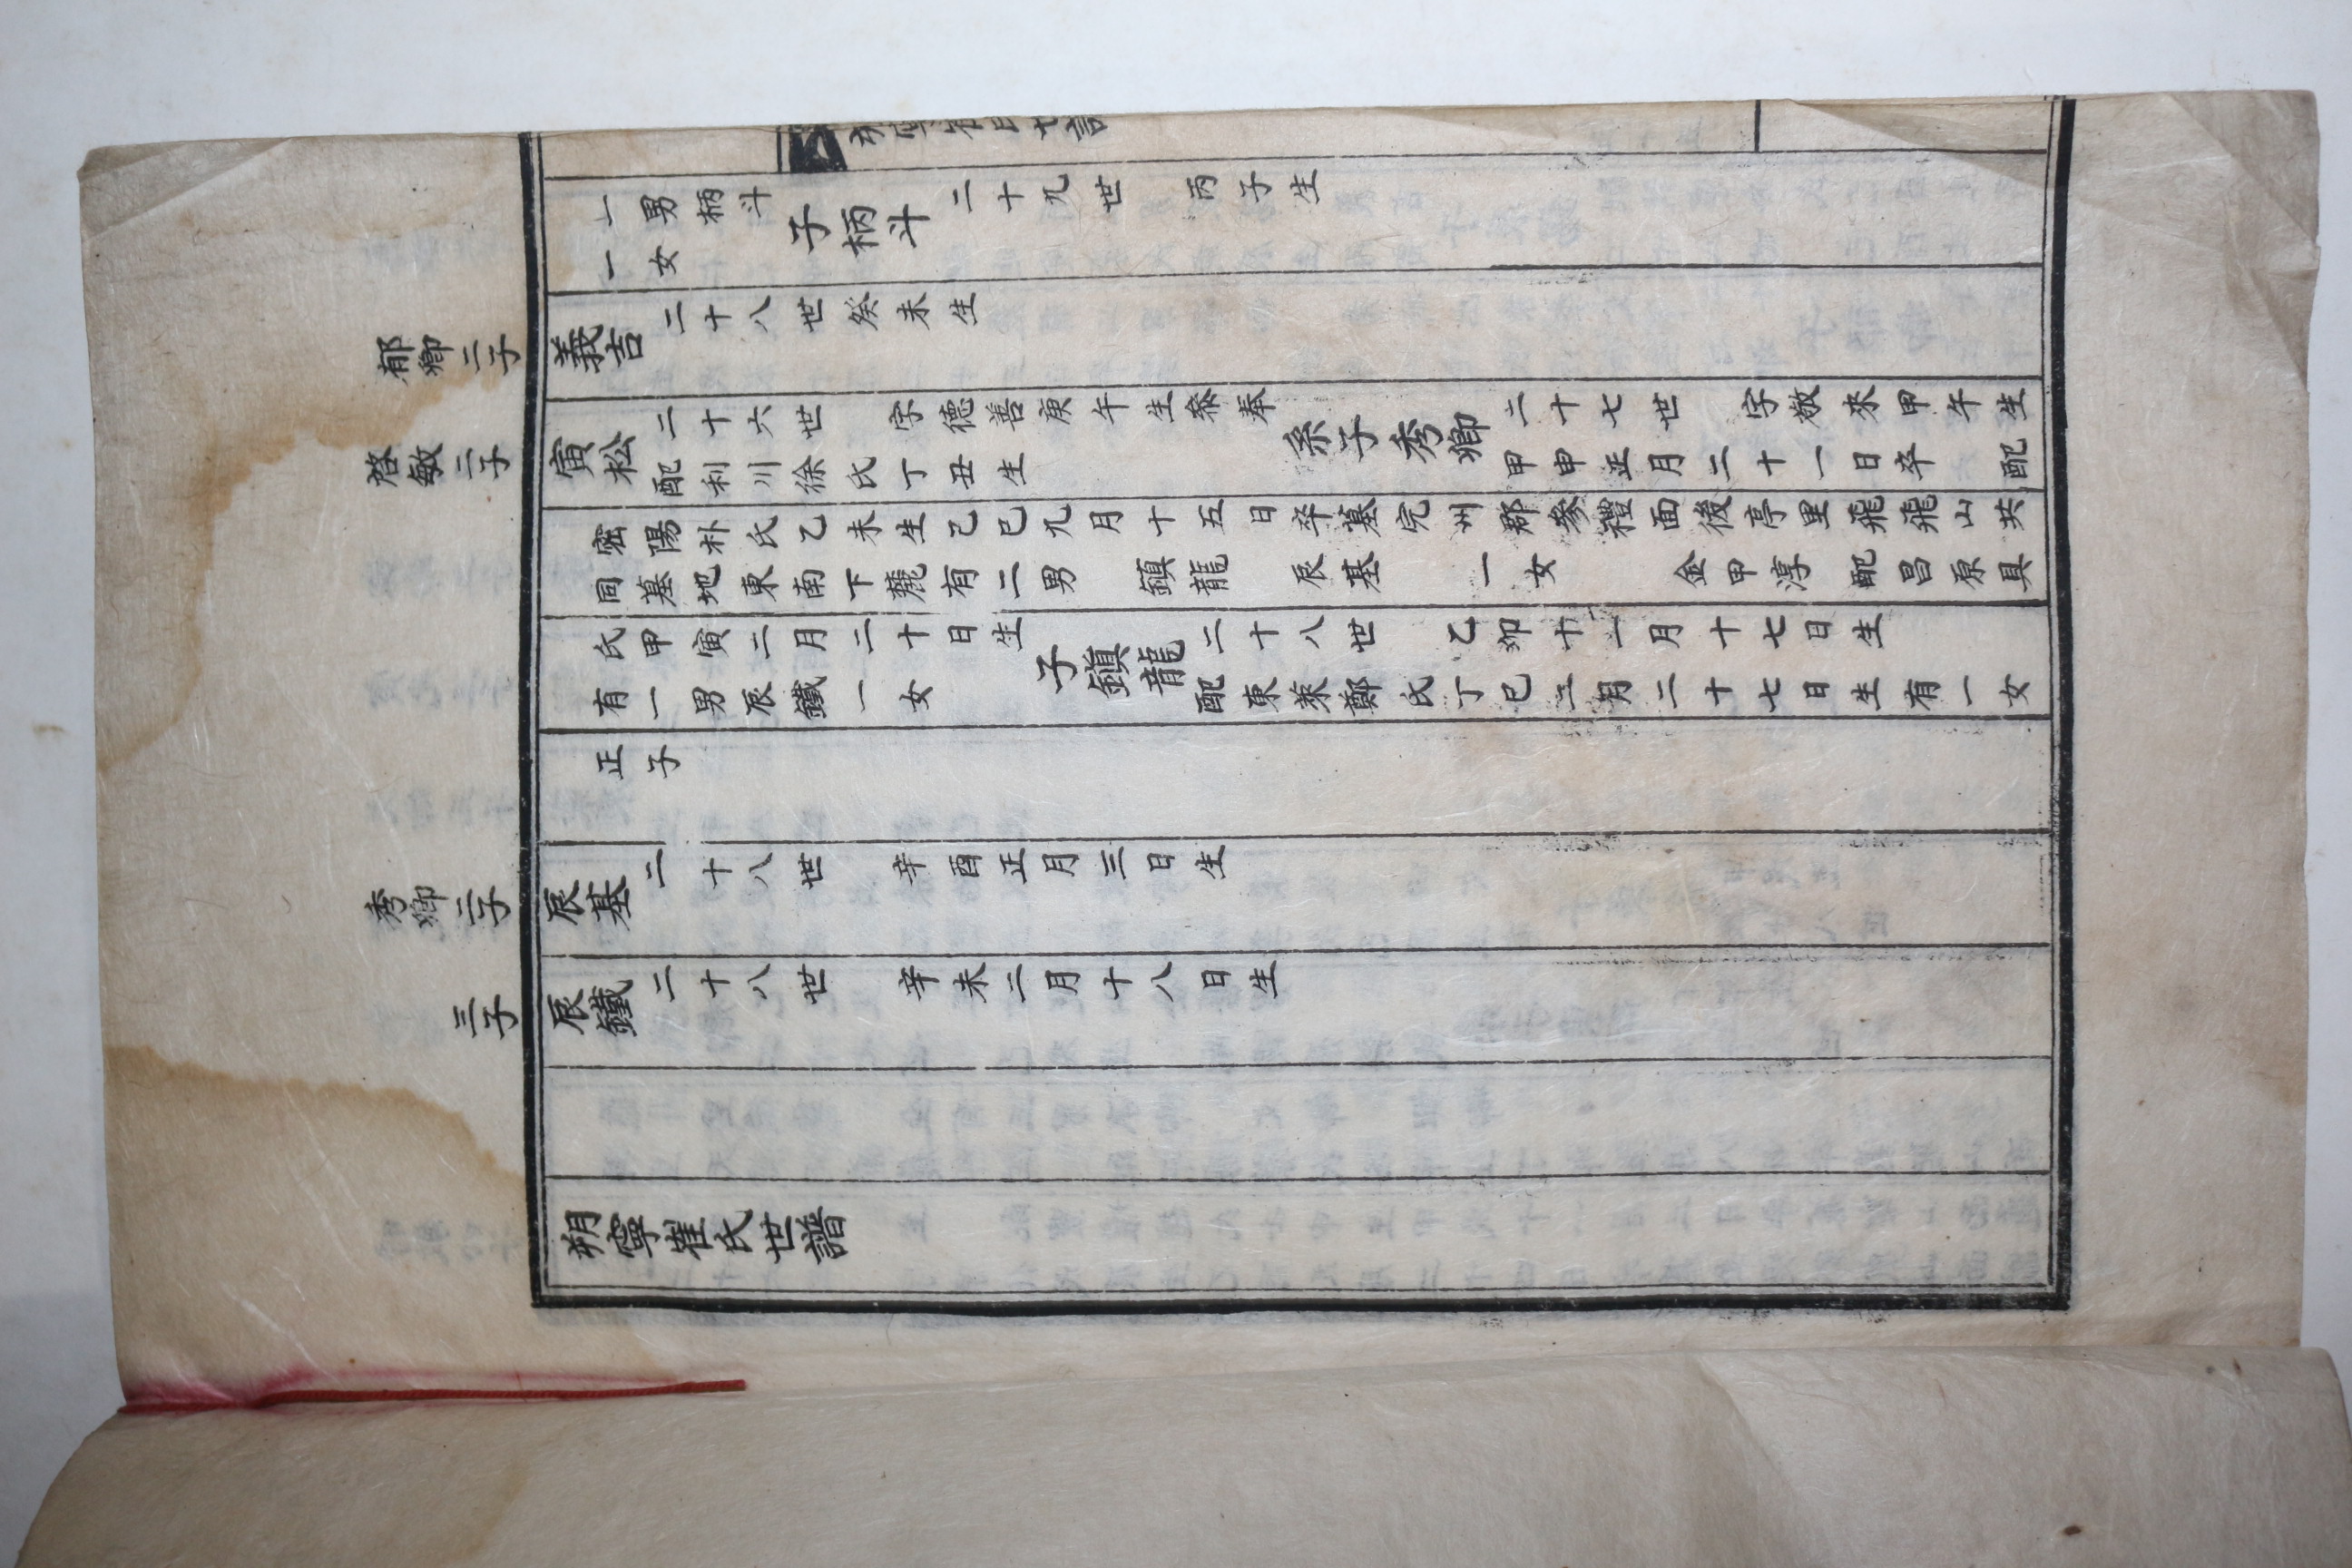 一男柄斗
一女
子柄斗
二十九世 丙子生
郁卿二子
義吉
二十八世癸未生
啓敏二子
寅松
二十六世 字德善庚午生參奉
配利川徐氏丁丑生
系子秀卿
二十七世 字敬來甲午生
甲申正月二十一日卒 配
密陽朴氏乙未生己巳九月十五日卒墓完州郡參禮面後亭里飛飛山共
同墓地東南下麓有二男 鎭龍 辰基 一女 金甲淳 配昌原具
氏甲寅二月二十日生
有一男辰鐵一女
子鎭龍
二十八世 乙卯十一月十七日生
配東萊鄭氏丁巳三月二十七日生有一女
正子
秀卿二子
辰基
二十八世 辛酉正月三日生
三子
辰鐵
二十八世 辛未二月十八日生
朔寧崔氏世譜